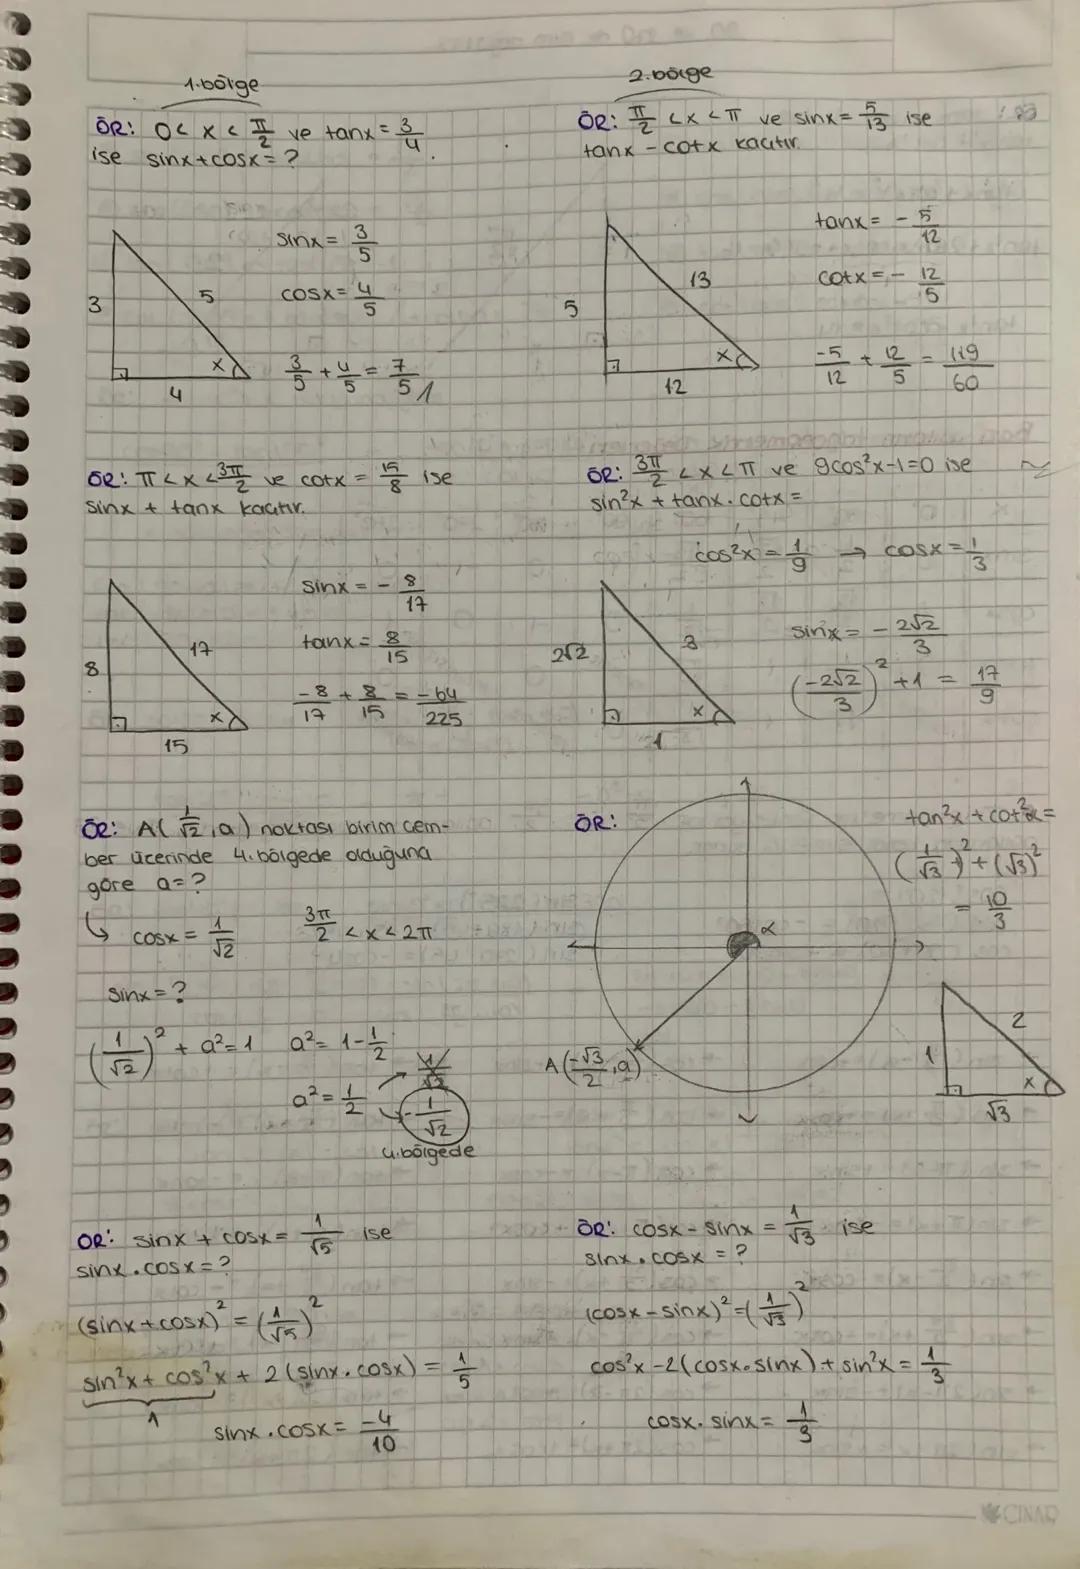 1.bölge
ÖR: 0 < x < π/2 ve tanx = 3/4
ise sinx+cosx = ?
sinx = 3/5
cosx = 4/5
3
5
4
x
3/5 + 4/5 = 7/5
2.bölge
ÖR: π/2 < x < π ve sinx = 5/13 ise
tanx - cotx kaçtır.
tanx = - 5/12
cotx = - 12/5
5
13
12
x
-5/12 + 12/5 = 119/60
ÖR: π < x < 3π/2 ve cotx = 15/8 ise
sinx + tanx kaçtır.
sinx = - 8/17
tanx = 8/15
8
17
15
x
-8/17 + 8/15 = -64/225
ÖR: 3π/2 < x < π ve 9cos²x-1=0 ise
sin²x + tanx . cotx =
cos²x = 1/9 → cosx = 1/3
sinx = - 2√2/3
2√2
3
1
x
(-2√2/3)² + 1 = 17/9
ÖR: A(1/√2, a) noktası birim çem-
ber üzerinde 4. bölgede olduğuna
göre a = ?
↳ cosx = 1/√2 3π/2 < x < 2π
sinx = ?
(1/√2)² + a² = 1 a² = 1 - 1/2
a² = 1/2
1/√2
-1/√2
4.bölgede
ÖR:
α
A(-√3/2, a)
tan²x + cot²α =
(1/√3)² + (√3)²
= 10/3
1
2
√3
x
ÖR: sinx + cosx = 1/√5 ise
sinx . cosx = ?
(sinx + cosx)² = (1/√5)²
sin²x + cos²x + 2(sinx . cosx) = 1/5
1
sinx . cosx = -4/10
ÖR: cosx - sinx = 1/√3 ise
sinx . cosx = ?
(cosx - sinx)² = (1/√3)²
cos²x - 2(cosx . sinx) + sin²x = 1/3
cosx . sinx = 1/3
ÇINAR